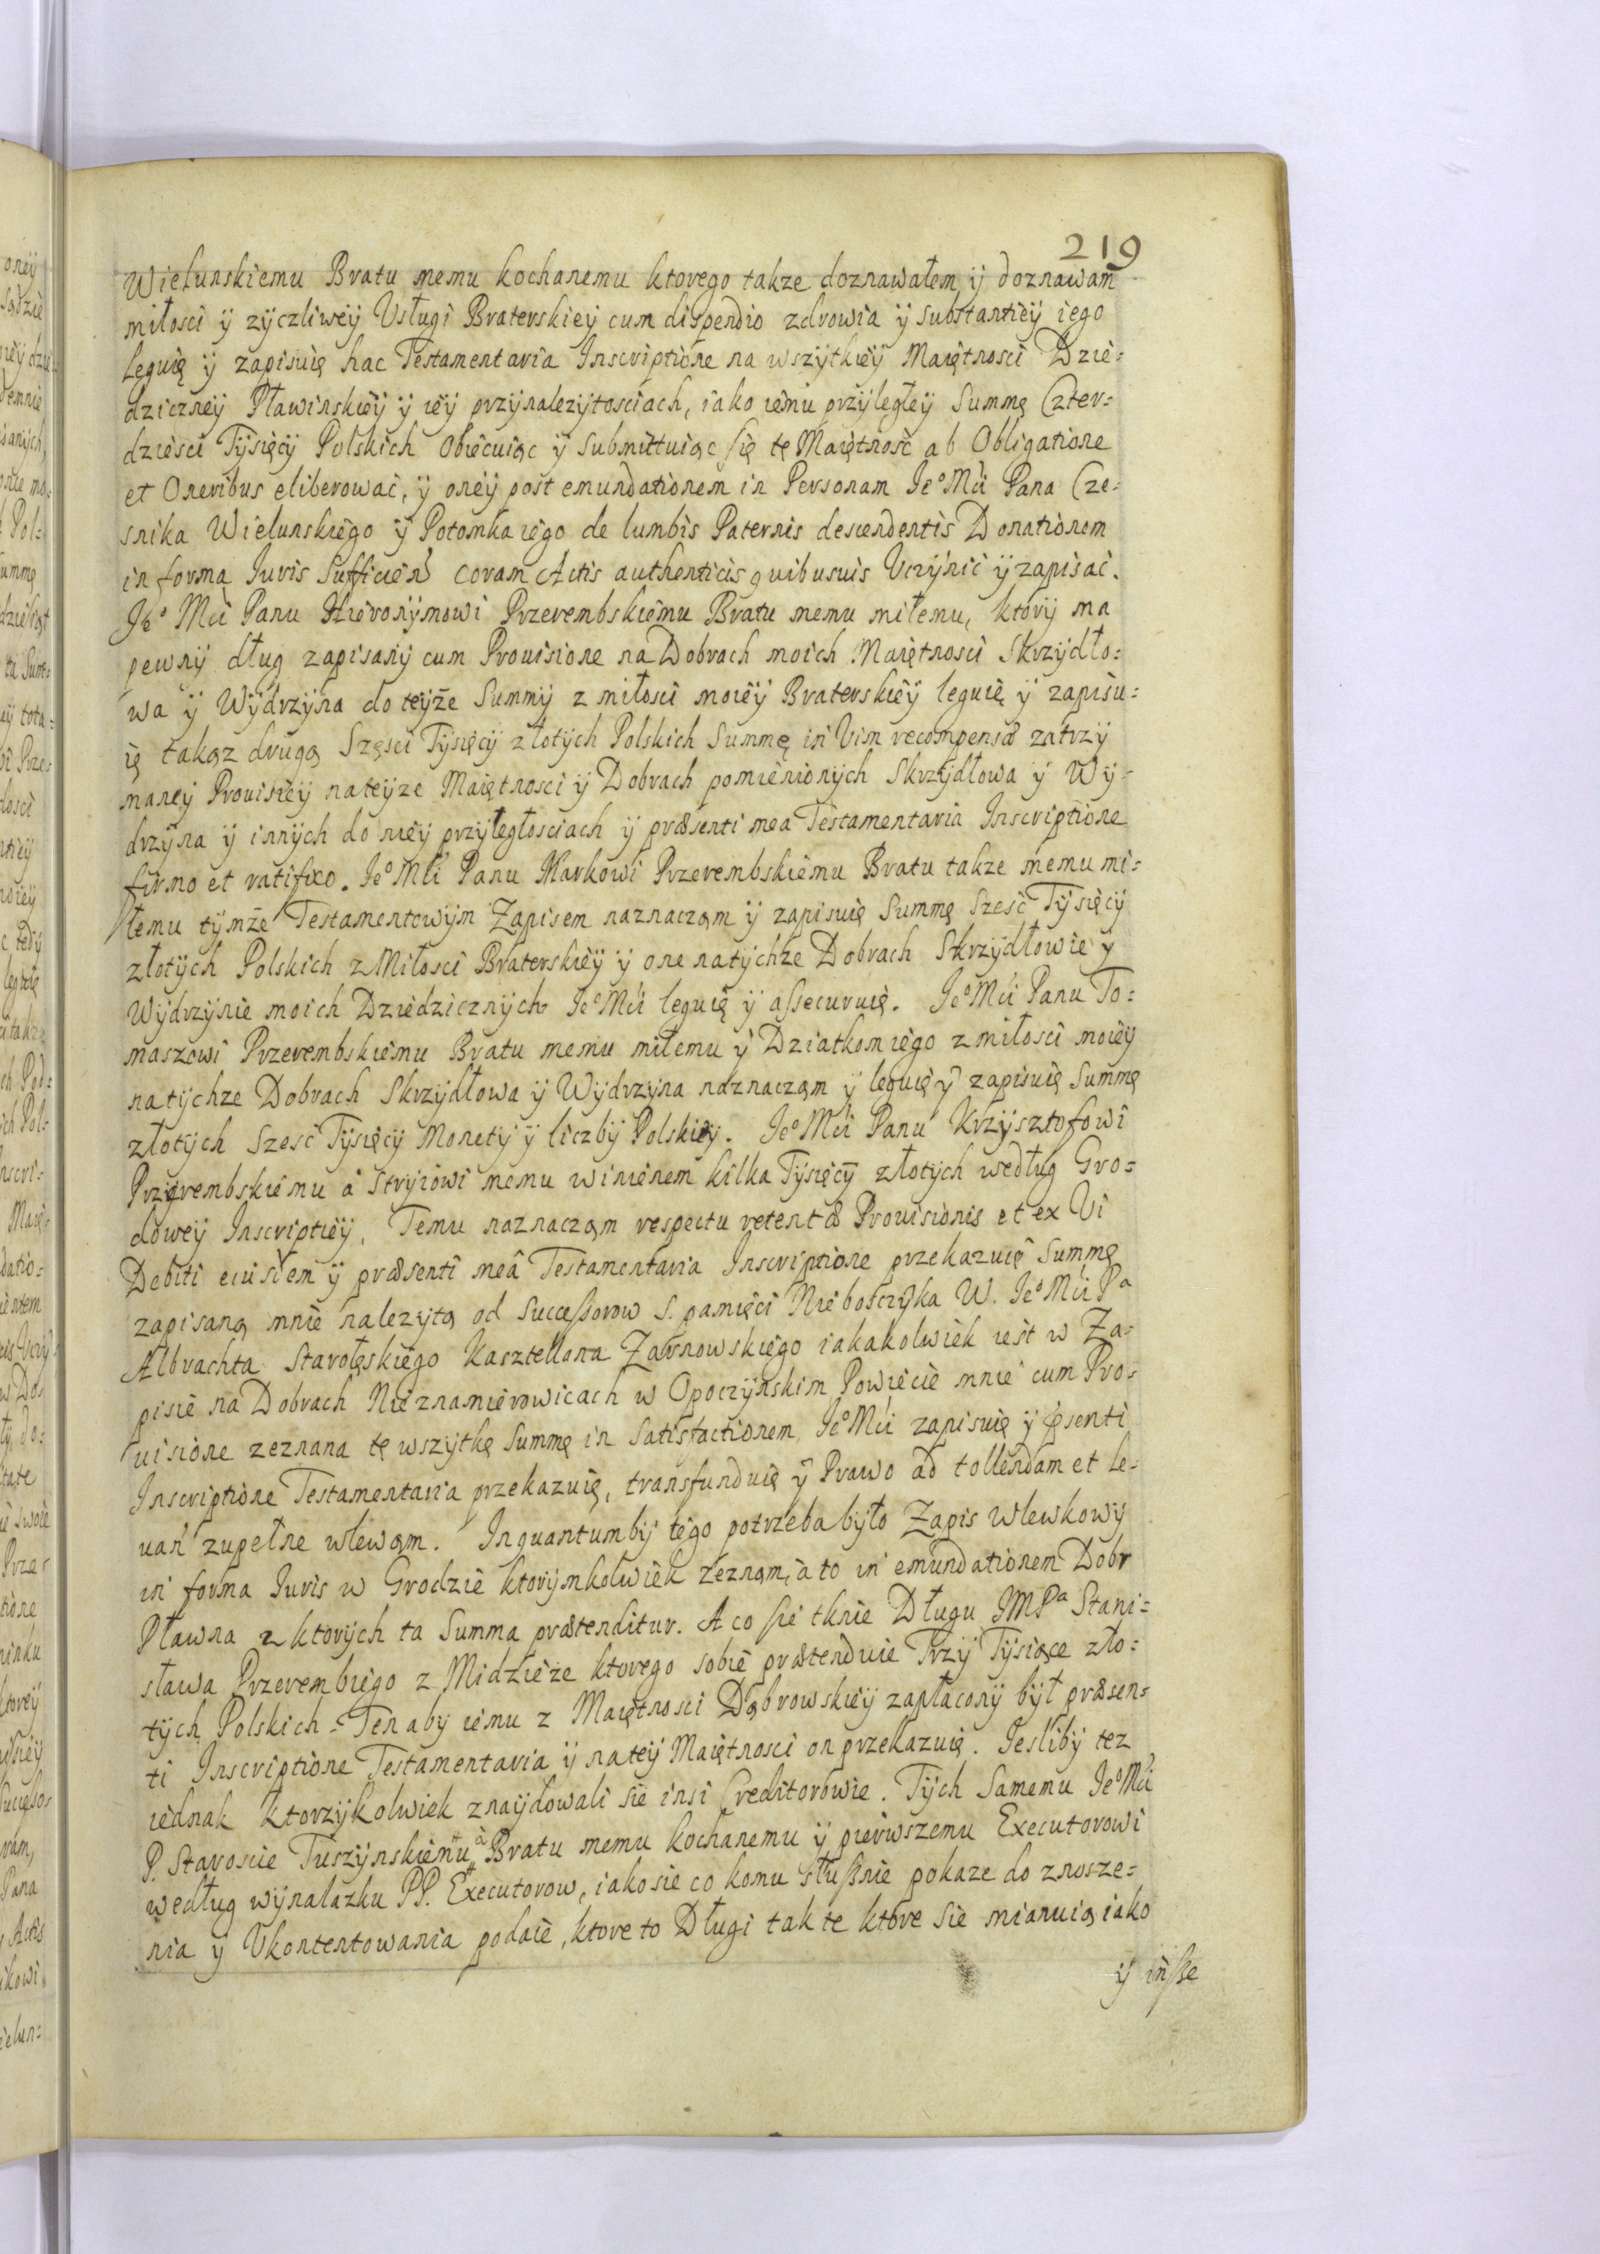 219
Wielunskiemu Bratu memu kochanemu ktorego takze doznawałem ÿ doznawam
miłosci ÿ zÿczliweÿ Vsługi Braterskieÿ cum dispendio zdrowia ÿ substantieÿ iego
leguię ÿ zapisuię hac Testamentaria Inscriptione na wszÿtkieÿ Maiętnosci Dzie=
dziczneÿ Pławinskieÿ ÿ ieÿ przÿnalezÿtosciach, iako iemu przÿległeÿ Summę Czter=
dziesci Tÿsięcÿ Polskich obiecuiąc ÿ submittuiąc się tę Maiętnosc ab Obligatione
et Oneribus eliberowac, ÿ oneÿ post emundationem in Personam Ieº Mći Pana Cze=
snika Wielunskiego ÿ Potomka iego de lumbis Paternis descendentis Donationem
in forma Iuris Sufficien coram Actis authenticis quibusuis Vczÿnic ÿ zapisac.
Ieº Mći Panu Hieronÿmowi Przerembskiemu Bratu memu miłemu, ktorÿ ma
pewnÿ dług zapisanÿ cum Prouisione na Dobrach moich Maiętnosci Skrzÿdło=
wa ÿ Wÿdrzÿna do teÿze Summÿ z miłosci moieÿ Braterskieÿ leguię ÿ zapisu=
ię takąz drugą Szęsci Tÿsięcÿ złotÿch Polskich Summę in Vim recompensæ zatrzÿ
maneÿ Prouisieÿ na teÿze Maiętnosci ÿ Dobrach pomienionÿch Skrzÿdłowa ÿ Wÿ=
drzÿna ÿ innÿch do nieÿ przÿległosciach ÿ præsenti mea Testamentaria Inscriptione
firmo et ratifico. Ieº Mći Panu Markowi Przerembskiemu Bratu takze memu mi=
łemu tÿmze Testamentowÿm Zapisem naznaczam ÿ zapisuię Summę Szesc Tÿsięcÿ
złotÿch Polskich z Miłosci Braterskieÿ ÿ one na tÿchze Dobrach Skrzÿdłowie ÿ
Wÿdrzÿnie moich Dziedzicznÿch Ieº Mći leguię ÿ assecuruię. Ieº Mći Panu To=
maszowi Przerembskiemu Bratu memu miłemu ÿ Dziatkom iego z miłosci moieÿ
na tÿchze Dobrach Skrzÿdłowa ÿ Wÿdrzÿna naznaczam ÿ leguię ÿ zapisuię Summę
złotÿch Szesc Tÿsięcÿ Monetÿ ÿ liczbÿ Polskieÿ. Ieº Mći Panu Krzÿsztofowi
Przerembskiemu a Strÿiowi memu winienem kilka Tÿsięcÿ złotÿch według Gro=
doweÿ Inscriptieÿ, Temu naznaczam respectu retentæ Prouisionis et ex Vi
Debiti eiusdem ÿ præsenti meâ Testamentaria Inscriptione przekazuię Summę
zapisaną mnie nalezÿtą od Successorow S. pamięci Nieboszczÿka W. Ieº Mći Pª
Albrachta Starołęskiego Kasztellana Zarnowskiego iakakolwiek iest w Za=
pisie na Dobrach Nieznamierowicach w Opoczÿnskim Powiecie mnie cum Pro=
uisione zeznana tę wszÿtkę Summę in Satisfactionem Ieº Mći zapisuię ÿ psenti
Inscriptione Testamentaria przekazuię, transfunduię ÿ Prawo ad tollendam et le=
uan zupełne wlewam. Inquantum bÿ tego potrzeba bÿło Zapis Wlewkowÿ
in forma Iuris w Grodzie ktorÿmkolwiek zeznam, a to in emundationem Dobr
Pławna z ktorÿch ta Summa prætenditur. A co sie tknie Długu JMPª Stani=
sława Przerembiego z Midzieze ktorego sobie prætenduie Trzÿ Tÿsiące zło=
tÿch Polskich = Ten abÿ iemu z Maiętnosci Dąbrowskieÿ zapłaconÿ bÿł præsen=
ti Inscriptione Testamentaria ÿ na teÿ Maiętnosci on przekazuię. Iesliby tez
iednak ktorzÿkolwiek znaÿdowali sie insi Creditorowie. Tÿch Samemu Ieº Mći
P. Staroscie Tuszÿnskiemu à Bratu memu kochanemu ÿ pierwszemu Executorowi
według wÿnalazku PP. Executorow, iako sie co komu słusznie pokaze do znosze=
nia ÿ Vkontentowania podaie, ktore to Długi tak te ktore sie mianuią iako
ÿ insze